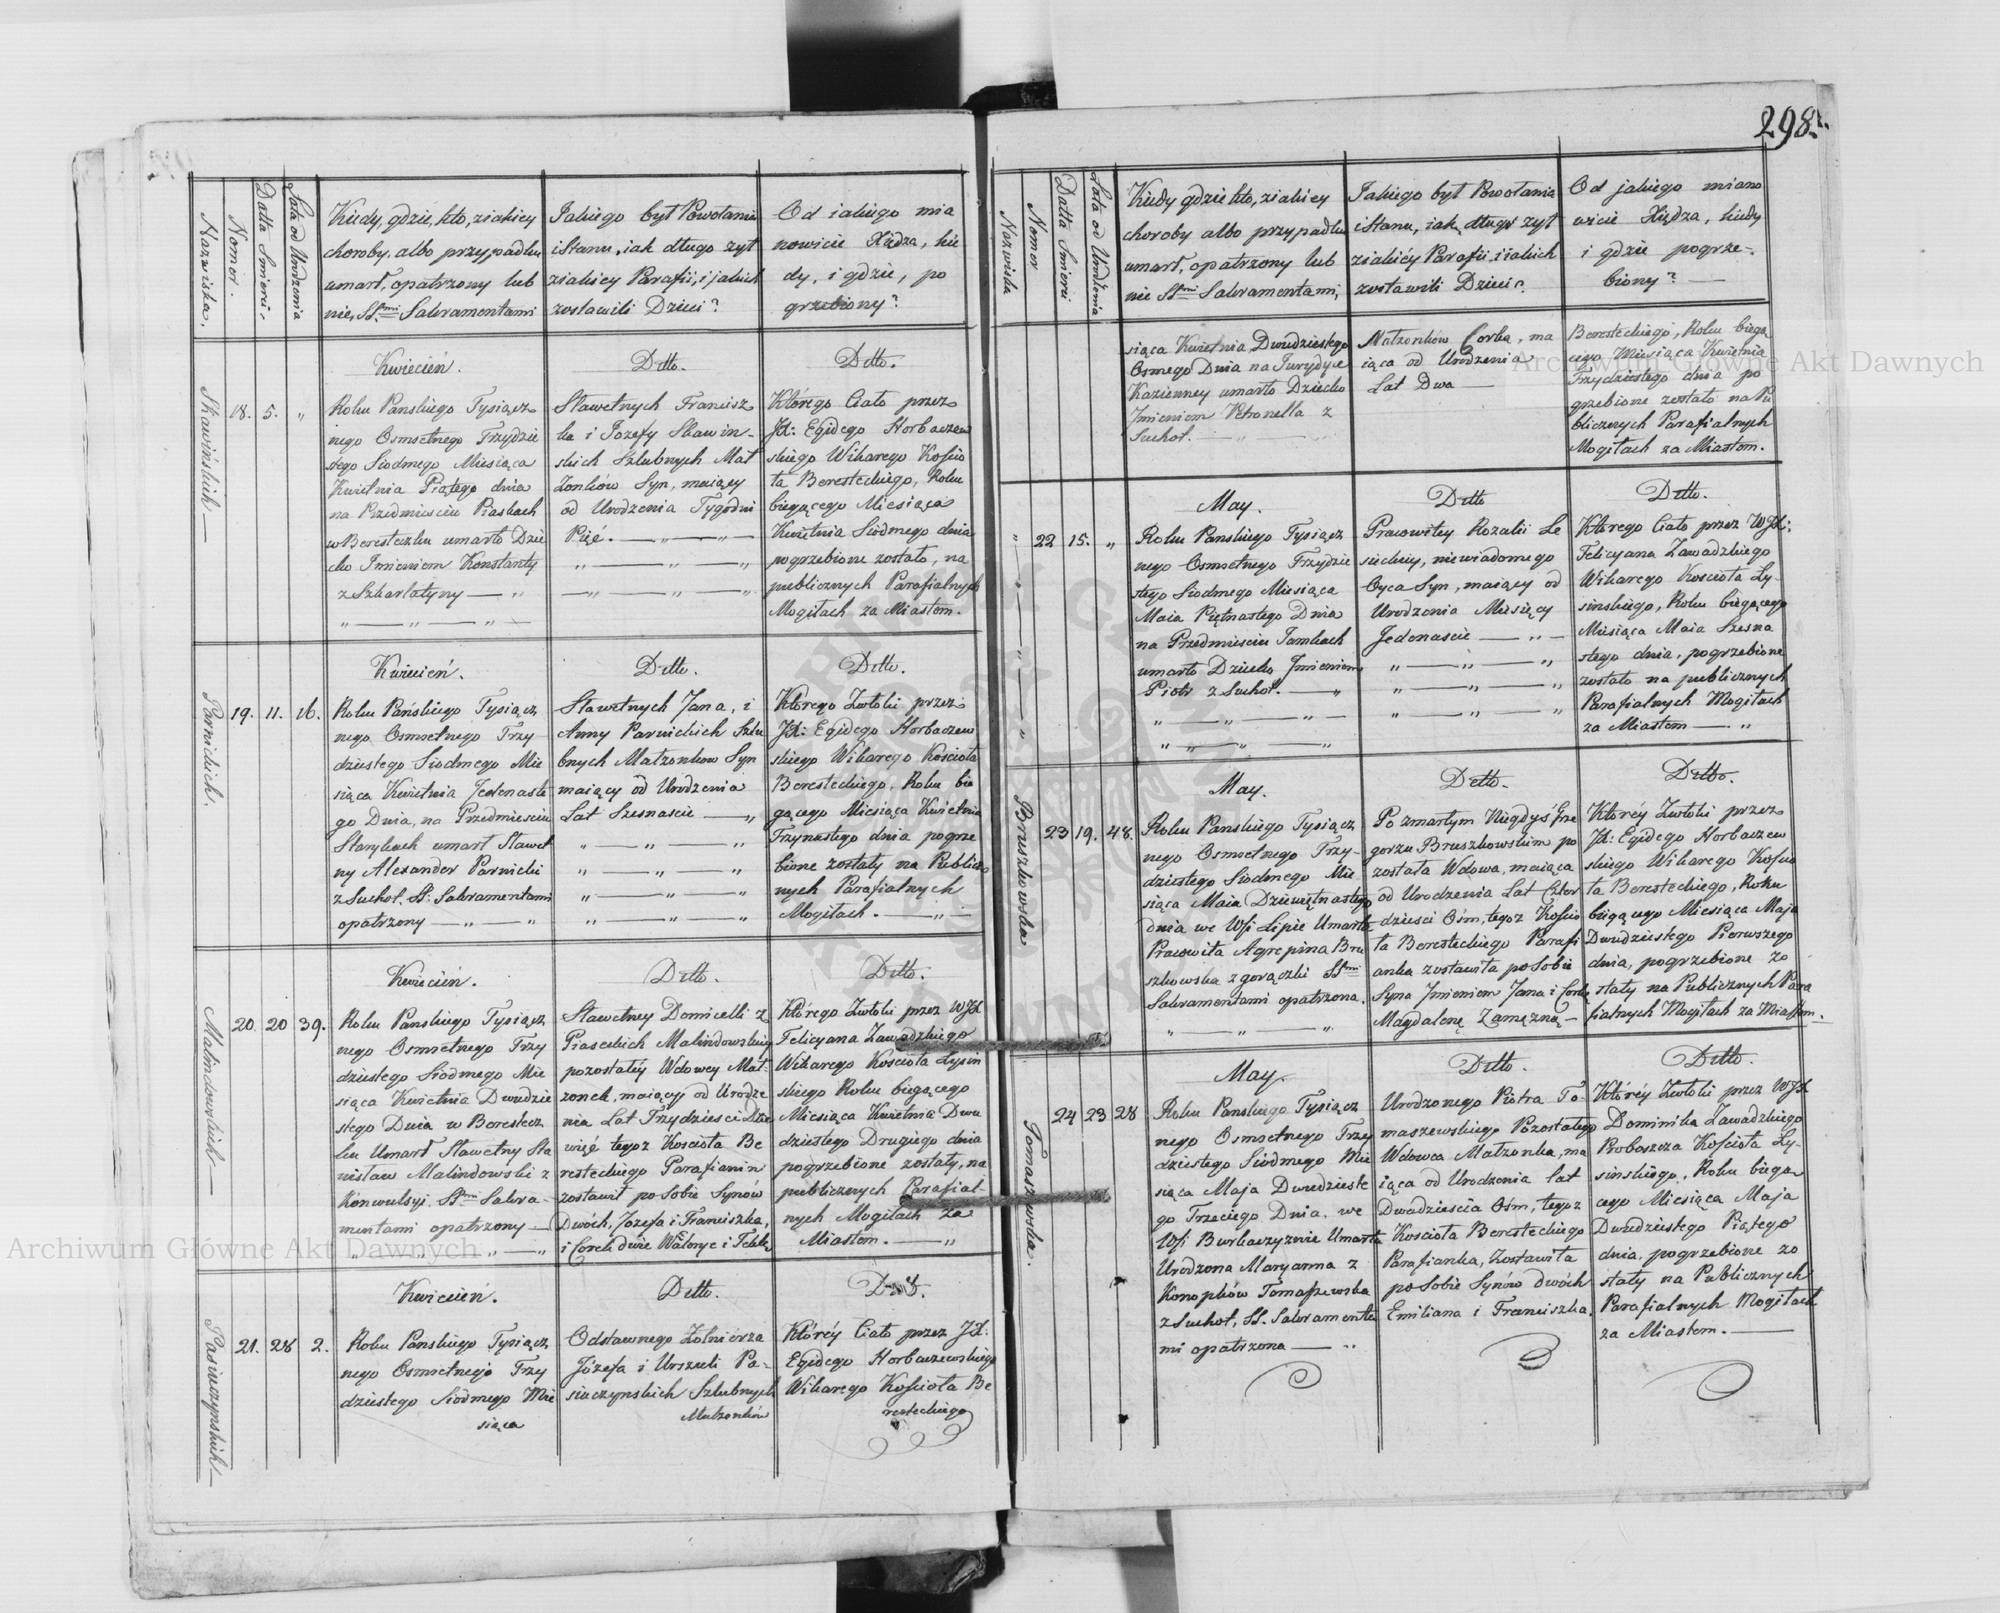 298.
Nazwiska.
Nomor.
Datta Smierci.
Lata od Urodzenia
Kiedy, gdzie, kto, z iakiey
choroby, albo przypadku
umarł, opatrzony lub
nie, SS.mi Sakramentami
Jakiego był Powołania
i Stanu, iak długo żył
z iakiey Parafii, i jakich
zostawili Dzieci?
Od iakiego mia
nowicie Xiędza, kie
dy, i gdzie, po
grzebiony?
Skawińskich
18. 5. „
Kwiecień.
Roku Panskiego Tysiącz
nego Osmsetnego Trzydzie
stego Siodmego Miesiąca
Kwietnia Piątego dnia
na Przedmiesciu Piaskach
w Beresteczku umarło Dzie
cko Imieniem Konstanty
z Szkarlatyny
Detto.
Sławetnych Francisz
ka i Jozefy Skawin-
skich Szlubnych Mał
żonkow Syn, maiący
od Urodzenia Tygodni
Pięć.
Detto.
Którego Ciało przez
JX: Egidego Horbaczew
skiego Wikarego Kościo
ła Beresteckiego, Roku
biegącego Miesiąca
Kwietnia Siodmego dnia
pogrzebione zostało, na
publicznych Parafialnych
Mogiłach za Miastem.
Parnickich.
19. 11. 16.
Kwiecień.
Roku Pańskiego Tysiącz
nego Osmsetnego Trzy-
dziestego Siodmego Mie
siąca Kwietnia Jedenaste
go Dnia, na Przedmiesciu
Starykach umarł Sławet
ny Alexander Parnicki
z Suchot, St. Sakramentami
opatrzony
Detto.
Sławetnych Jana, i
Anny Parnickich Szlu
bnych Małzonkow Syn
maiący od Urodzenia
Lat Szesnascie
Detto.
Ktorego Zwłoki przez
JX: Egidego Horbaczew
skiego Wikarego Kościoła
Beresteckiego, Roku bie
gącego Miesiąca Kwietnia
Trzynastego dnia pogrze
bione zostały na Publicz
nych Parafialnych
Mogiłach.
Malindowskich
20. 20 39.
Kwiecień.
Roku Panskiego Tysiącz
nego Osmsetnego Trzy
dziestego Siódmego Mie
siąca Kwietnia Dwudzie
stego Dnia w Berestecz
ku Umarł Sławetny Sta
nisław Malindowski z
Konwulsyi. SS.mi Sakra-
mentami opatrzony
Detto.
Sławetney Domicelli z
Piaseckich Malindowskiey
pozostałey Wdowey Mał-
zonek, maiący od Urodze
nia Lat Trzydziesci Dzie
więć tegoż Kościoła Be
resteckiego Parafianin
zostawił po Sobie Synów
Dwóch, Jozefa i Franciszka,
i Corek dwie Waleryę i Teklę
Detto.
Którego Zwłoki przez WJX
Felicyana Zawadzkiego
Wikarego Kościoła Łysin
skiego Roku biegącego
Miesiąca Kwietnia Dwu
dziestego Drugiego dnia
pogrzebione zostały, na
publicznych Parafial-
nych Mogiłach za
Miastem.
Pasieczynskich
21. 28 2.
Kwiecień.
Roku Panskiego Tysiącz
nego Osmsetnego Trzy
dziestego Siódmego Mie
siąca
Detto.
Odstawnego Żołnierza
Józefa i Urszuli Pa-
sieczynskich Szlubnych
Małżonków
Detto.
Któréy Ciało przez JX:
Egidego Horbaczewskiego
Wikarego Kościoła Be
resteckiego
Nazwiska
Nomor
Datta Smierci
Lata od Urodzenia
Kiedy gdzie kto, z iakiey
choroby albo przypadku
umarł, opatrzony lub
nie SS.mi Sakramentami,
Jakiego był Powołania
i Stanu, iak długo żył
z iakiéy Parafii, i iakich
zostawili Dzieci?
Od jakiego miano
wicie Xiędza, kiedy
i gdzie pogrze-
biony?
siąca Kwietnia Dwudziestego
Osmego Dnia na Jurydyce
Kazienney umarło Dziecko
Imieniem Petronella z
Suchot.
Małzonków Corka, ma
iąca od Urodzenia
Lat Dwa
Beresteckiego, Roku biegą
cego Miesiąca Kwietnia
Trzydziestego dnia po
grzebione zostało na Pu
blicznych Parafialnych
Mogiłach za Miastem.
22 15. „
May.
Roku Panskiego Tysiącz
nego Osmsetnego Trzydzie
stego Siodmego Miesiąca
Maia Piętnastego Dnia
na Przedmiesciu Zamkach
umarło Dziecko Imieniem
Piotr z Suchot.
Detto
Pracowitey Rozalii Le
suckiey, niewiadomego
Oyca Syn, maiący od
Urodzenia Miesięcy
Jedenascie
Detto.
Ktorego Ciało przez WJX:
Felicyana Zawadzkiego
Wikarego Kościoła Ły-
sinskiego, Roku biegącego
Miesiąca Maia Szesna
stego dnia, pogrzebione
zostało na publicznych
Parafialnych Mogiłach
za Miastem
Bruszkowska
23 19. 48.
May.
Roku Panskiego Tysiącz
nego Osmsetnego Trzy-
dziestego Siodmego Mie
siąca Maia Dziewiętnastego
dnia we Wsi Lipie Umarła
Pracowita Agrepina Bru
szkowska z gorączki SS.mi
Sakramentami opatrzona.
Detto.
Po zmarłym Niegdyś Grze
gorzu Bruszkowskim po
została Wdowa, maiąca
od Urodzenia Lat Czter
dziesci Ośm, tegoz Kościo
ła Beresteckiego Parafi
anka zostawiła po Sobie
Syna Imieniem Jana i Corkę
Magdalenę Zamężną
Detto.
Któréy Zwłoki przez
JX: Egidego Horbaczew
skiego Wikarego Kościo
ła Beresteckiego, Roku
biegącego Miesiąca Maja
Dwudziestego Pierwszego
dnia, pogrzebione zo
stały na Publicznych Para
fialnych Mogiłach za Miastem.
Tomaszewska.
24 23 28
May.
Roku Panskiego Tysiącz
nego Osmsetnego Trzy
dziestego Siódmego Mie
siąca Maja Dwudzieste
go Trzeciego Dnia we
Wsi Burkaczyznie Umarła
Urodzona Maryanna z
Konopków Tomaszewska
z Suchot, SS. Sakramenta
mi opatrzona
Detto.
Urodzonego Piotra To
maszewskiego Pozostałego
Wdowca Małżonka, ma
iąca od Urodzenia lat
Dwadziescia Ośm, tegoz
Kościoła Beresteckiego
Parafianka, Zostawiła
po Sobie Synów dwóch
Emiliana i Franciszka.
Detto.
Któréy Zwłoki przez WJX
Dominika Zawadzkiego
Proboszcza Kościoła Ły-
sinskiego, Roku biegą
cego Miesiąca Maja
Dwudziestego Piątego
dnia, pogrzebione zo
stały na Publicznych
Parafialnych Mogiłach
za Miastem.
Archiwum Główne Akt Dawnych
Archiwum Główne Akt Dawnych